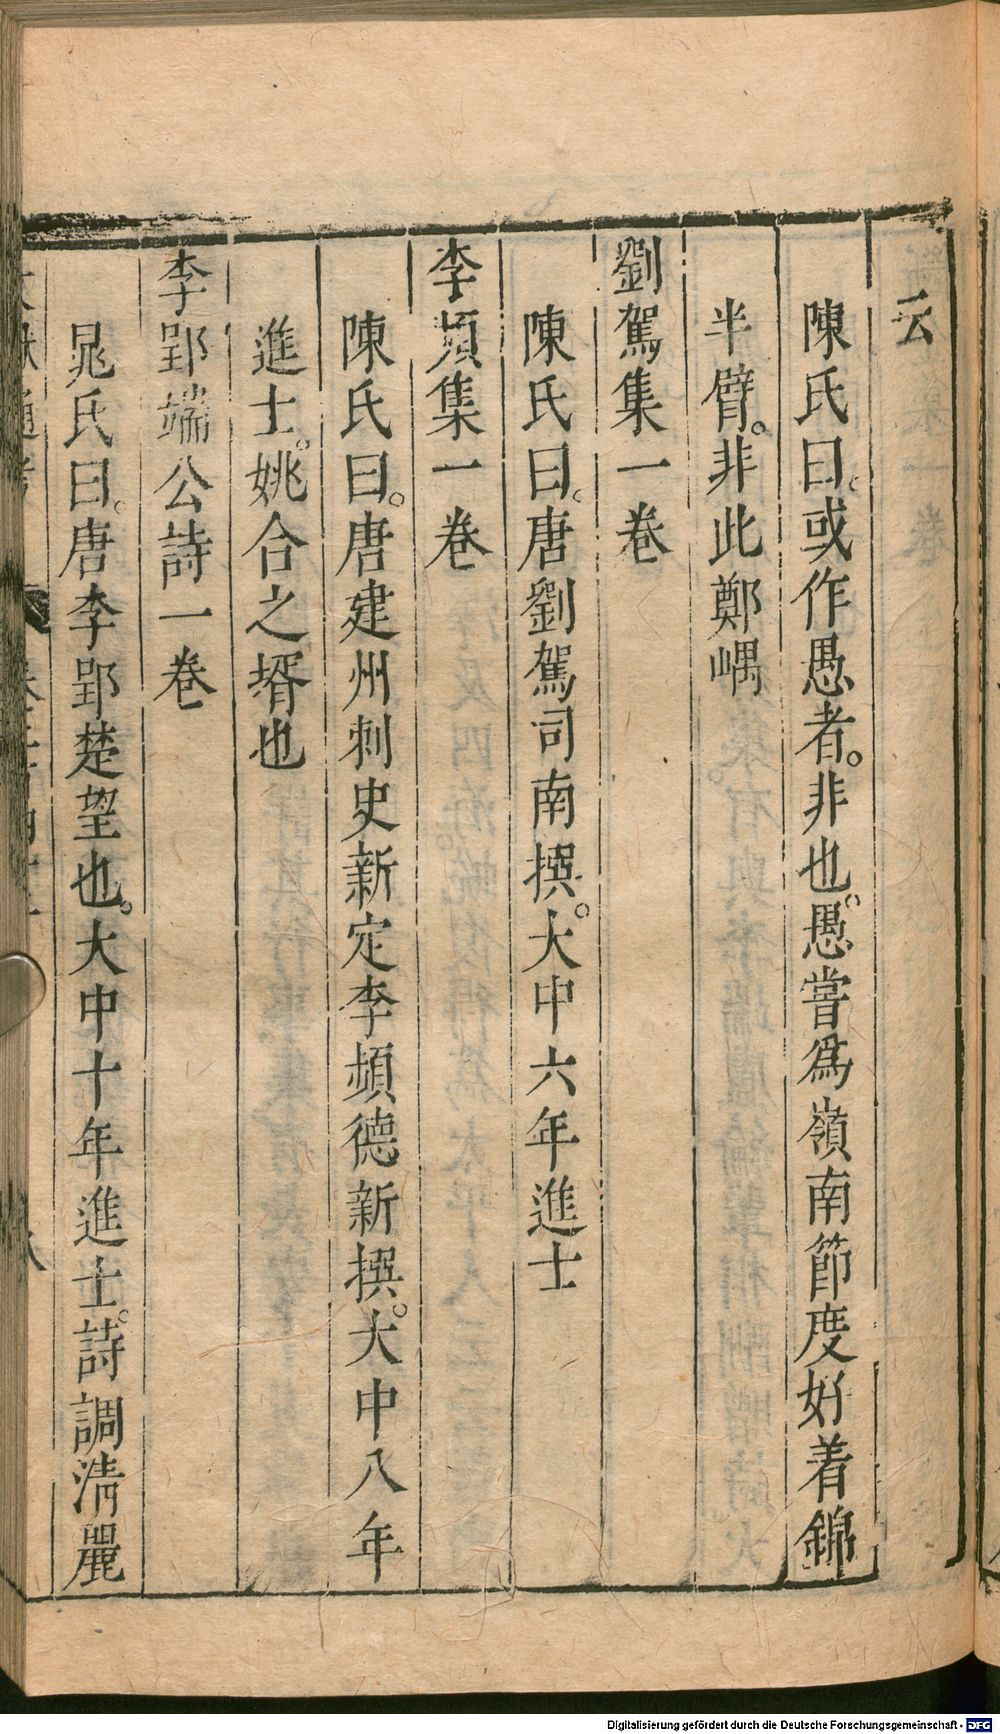 云
陳氏曰。或作愚者。非也。愚嘗爲嶺南節度好着錦
半臂。非此鄭嵎
劉駕集一卷
陳氏曰。唐劉駕司南撰。大中六年進士
李頻集一卷
陳氏曰。唐建州刺史新定李頻德新撰。大中八年
進士。姚合之壻也
李郢端公詩一卷
晁氏曰。唐李郢楚望也。大中十年進士。詩調淸麗
八
Digitalisierung gefördert durch die Deutsche Forschungsgemeinschaft - DFG